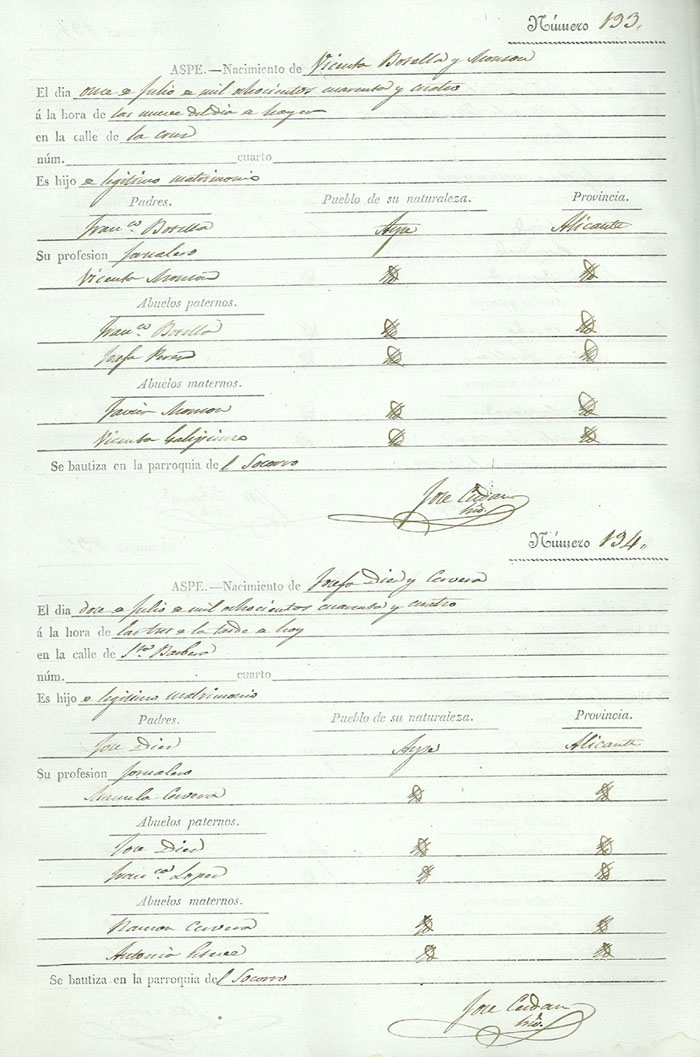 Número 133.
ASPE.—Nacimiento de Vicenta Borella y Monzon
El dia once de Julio de mil ochocientos cuarenta y cuatro
á la hora de las nueve del dia de hayer
en la calle de la cruz
núm. cuarto
Es hijo de legitimo matrimonio
Padres. Pueblo de su naturaleza. Provincia.
Franco. Borella Aspe Alicante
Su profesion Jornalero
Vicenta Monzon
Abuelos paternos.
Franco. Borella
Josefa
Abuelos maternos.
Javier Monzon
Vicenta
Se bautiza en la parroquia del Socorro
Jose Cerdan
Número 134.
ASPE.—Nacimiento de Josefa Diez y Cervera
El dia doce de Julio de mil ochocientos cuarenta y cuatro
á la hora de las tres de la tarde de hoy
en la calle de Sta. Barbara
núm. cuarto
Es hijo de legitimo matrimonio
Padres. Pueblo de su naturaleza. Provincia.
Jose Diez Aspe Alicante
Su profesion Jornalero
Manuela Cervera
Abuelos paternos.
Jose Diez
Franca. Lopez
Abuelos maternos.
Ramon Cervera
Antonia
Se bautiza en la parroquia del Socorro
Jose Cerdan